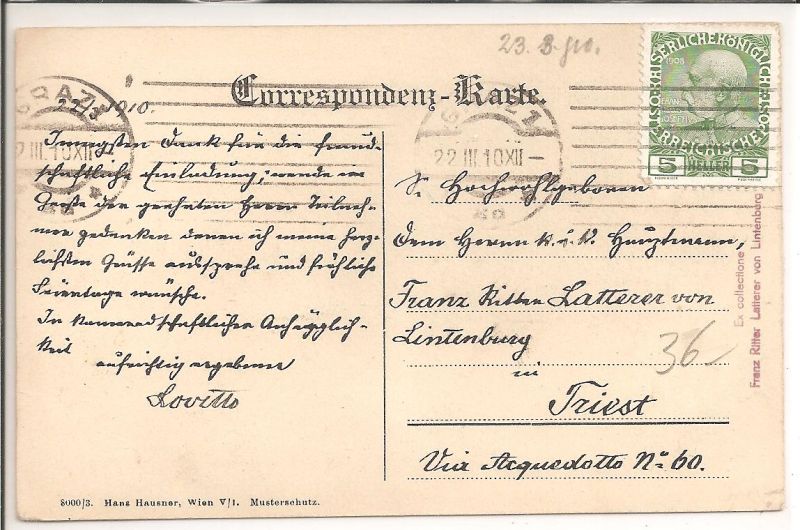 23. 3. 910.
Correspondenz-Karte.
GRAZ 1
22 III 10 XII
GRAZ 1
22. III. 10 XII -
KAISERLICHE KÖNIGLICHE
ÖSTERREICHISCHE POST
1908
FRANZ JOSEF I.
5 HELLER 5
22/3 1910.
Innigsten Dank für die freund-
schaftliche Einladung; werde im
Geiste der geehrten Herrn Teilneh-
mer gedenken denen ich meine herz-
lichsten Grüsse ausspreche und fröhliche
Feiertage wünsche.
In kameradschaftlicher Anhänglich-
keit
aufrichtig ergebener
Lovitto
Sr. Hochwohlgeboren
Dem Herrn k. u. k. Hauptmann,
Franz Ritter Latterer von
Lintenburg
in
Triest
Via Acquedotto No 60.
36
Ex collectione
Franz Ritter Latterer von Lintenburg
8000/3. Hans Hausner, Wien V/1. Musterschutz.